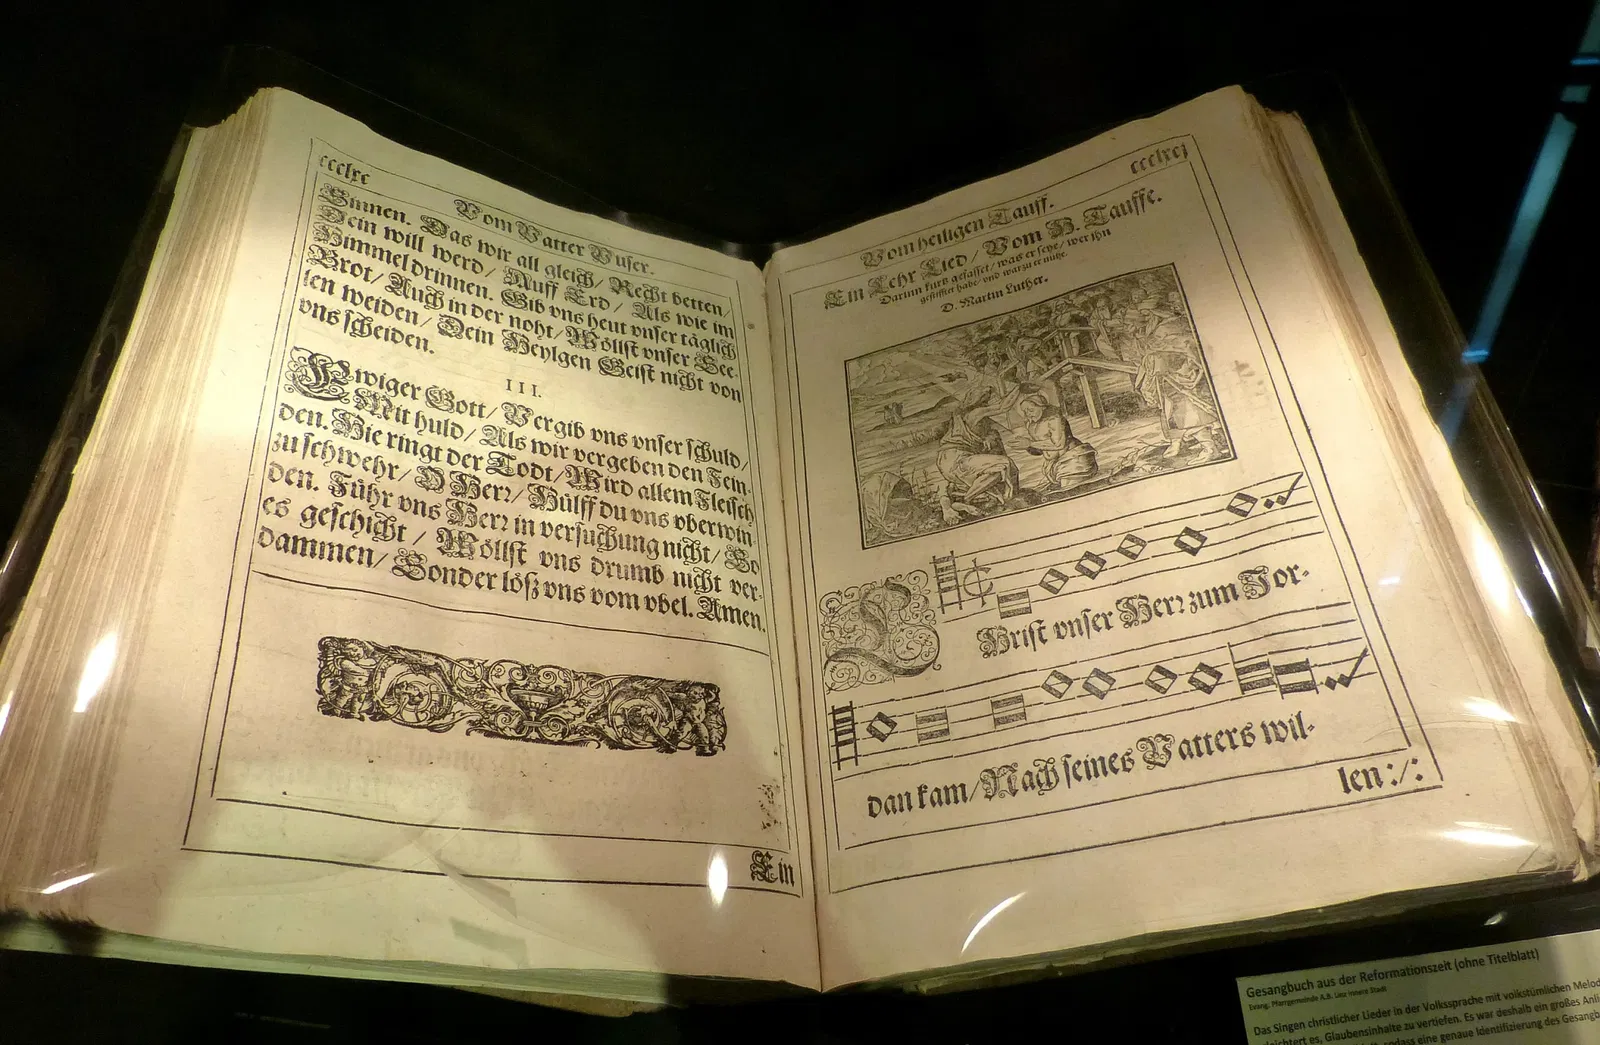 ccclxc
Vom Vatter Vnser.
Sinnen. Das wir all gleich/ Recht betten/
Dein will werd/ Auff Erd/ Als wie im
Himmel drinnen. Gib vns heut vnser täglich
Brot/ Auch in der noht/ Wöllst vnser See-
len weiden/ Dein Heylgen Geist nicht von
vns scheiden.
III.
Ewiger Gott/ Vergib vns vnser schuld/
Mit huld/ Als wir vergeben den Fein-
den. Hie ringt der Todt/ Wird allem Fleisch
zu schwehr/ O Herr/ Hülff du vns vberwin-
den. Führ vns Herr in versuchung nicht/ So
es geschicht/ Wöllst vns drumb nicht ver-
dammen/ Sonder löß vns vom vbel. Amen.
Ein
ccclxcj
Vom heiligen Tauff.
Ein Lehr Lied/ Vom H. Tauffe.
Darinn kurtz gefasset/ was er seye/ wer jhn
gestifftet habe/ vnd warzu er nutze.
D. Martin Luther.
Christ vnser Herr zum Jor-
dan kam/ Nach seines Vatters wil-
len :/:
Gesangbuch aus der Reformationszeit (ohne Titelblatt)
Evang. Pfarrgemeinde A.B. Linz Innere Stadt
Das Singen christlicher Lieder in der Volkssprache mit volkstümlichen
es, Glaubensinhalte zu vertiefen. Es war deshalb ein großes
sodass eine genaue Identifizierung des